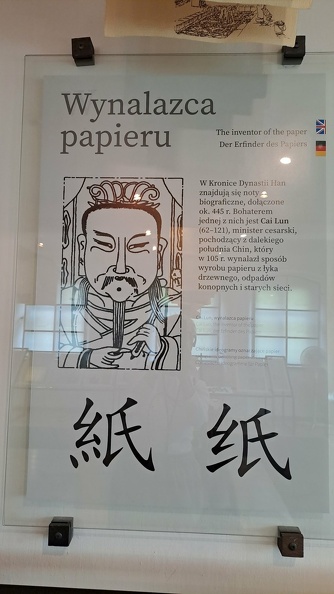 Wynalazca
papieru
The inventor of the paper
Der Erfinder des Papiers
W Kronice Dynastii Han
znajdują się noty
biograficzne, dołączone
ok. 445 r. Bohaterem
jednej z nich jest Cai Lun
(62–121), minister cesarski,
pochodzący z dalekiego
południa Chin, który
w 105 r. wynalazł sposób
wyrobu papieru z łyka
drzewnego, odpadów
konopnych i starych sieci.
紙 纸